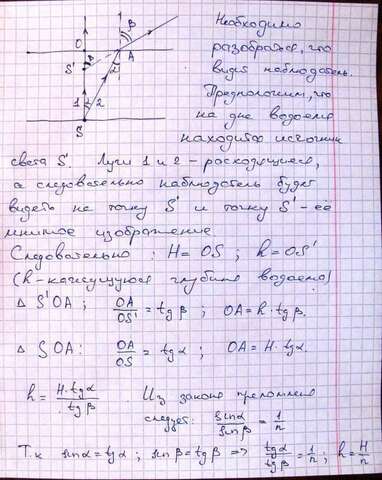 Необходимо
разобраться, что
видит наблюдатель.
Предположим, что
на дне водоема
находится источник
света S. Лучи 1 и 2 – расходящиеся,
а следовательно наблюдатель будет
видеть не точку S и точку S' – её
мнимое изображение
Следовательно: H = OS; h = OS'
(h – кажущуюся глубина водоема)
Δ S'OA; OA/OS' = tg β; OA = h·tg β.
Δ SOA: OA/OS = tg α; OA = H·tg α.
h = H·tg α / tg β. Из закона преломления
следует: sin α / sin β = 1/n
Т.к sin α = tg α; sin β = tg β => tg α / tg β = 1/n; h = H/n
O
A
S'
S
1
2
β
β
α
α
1